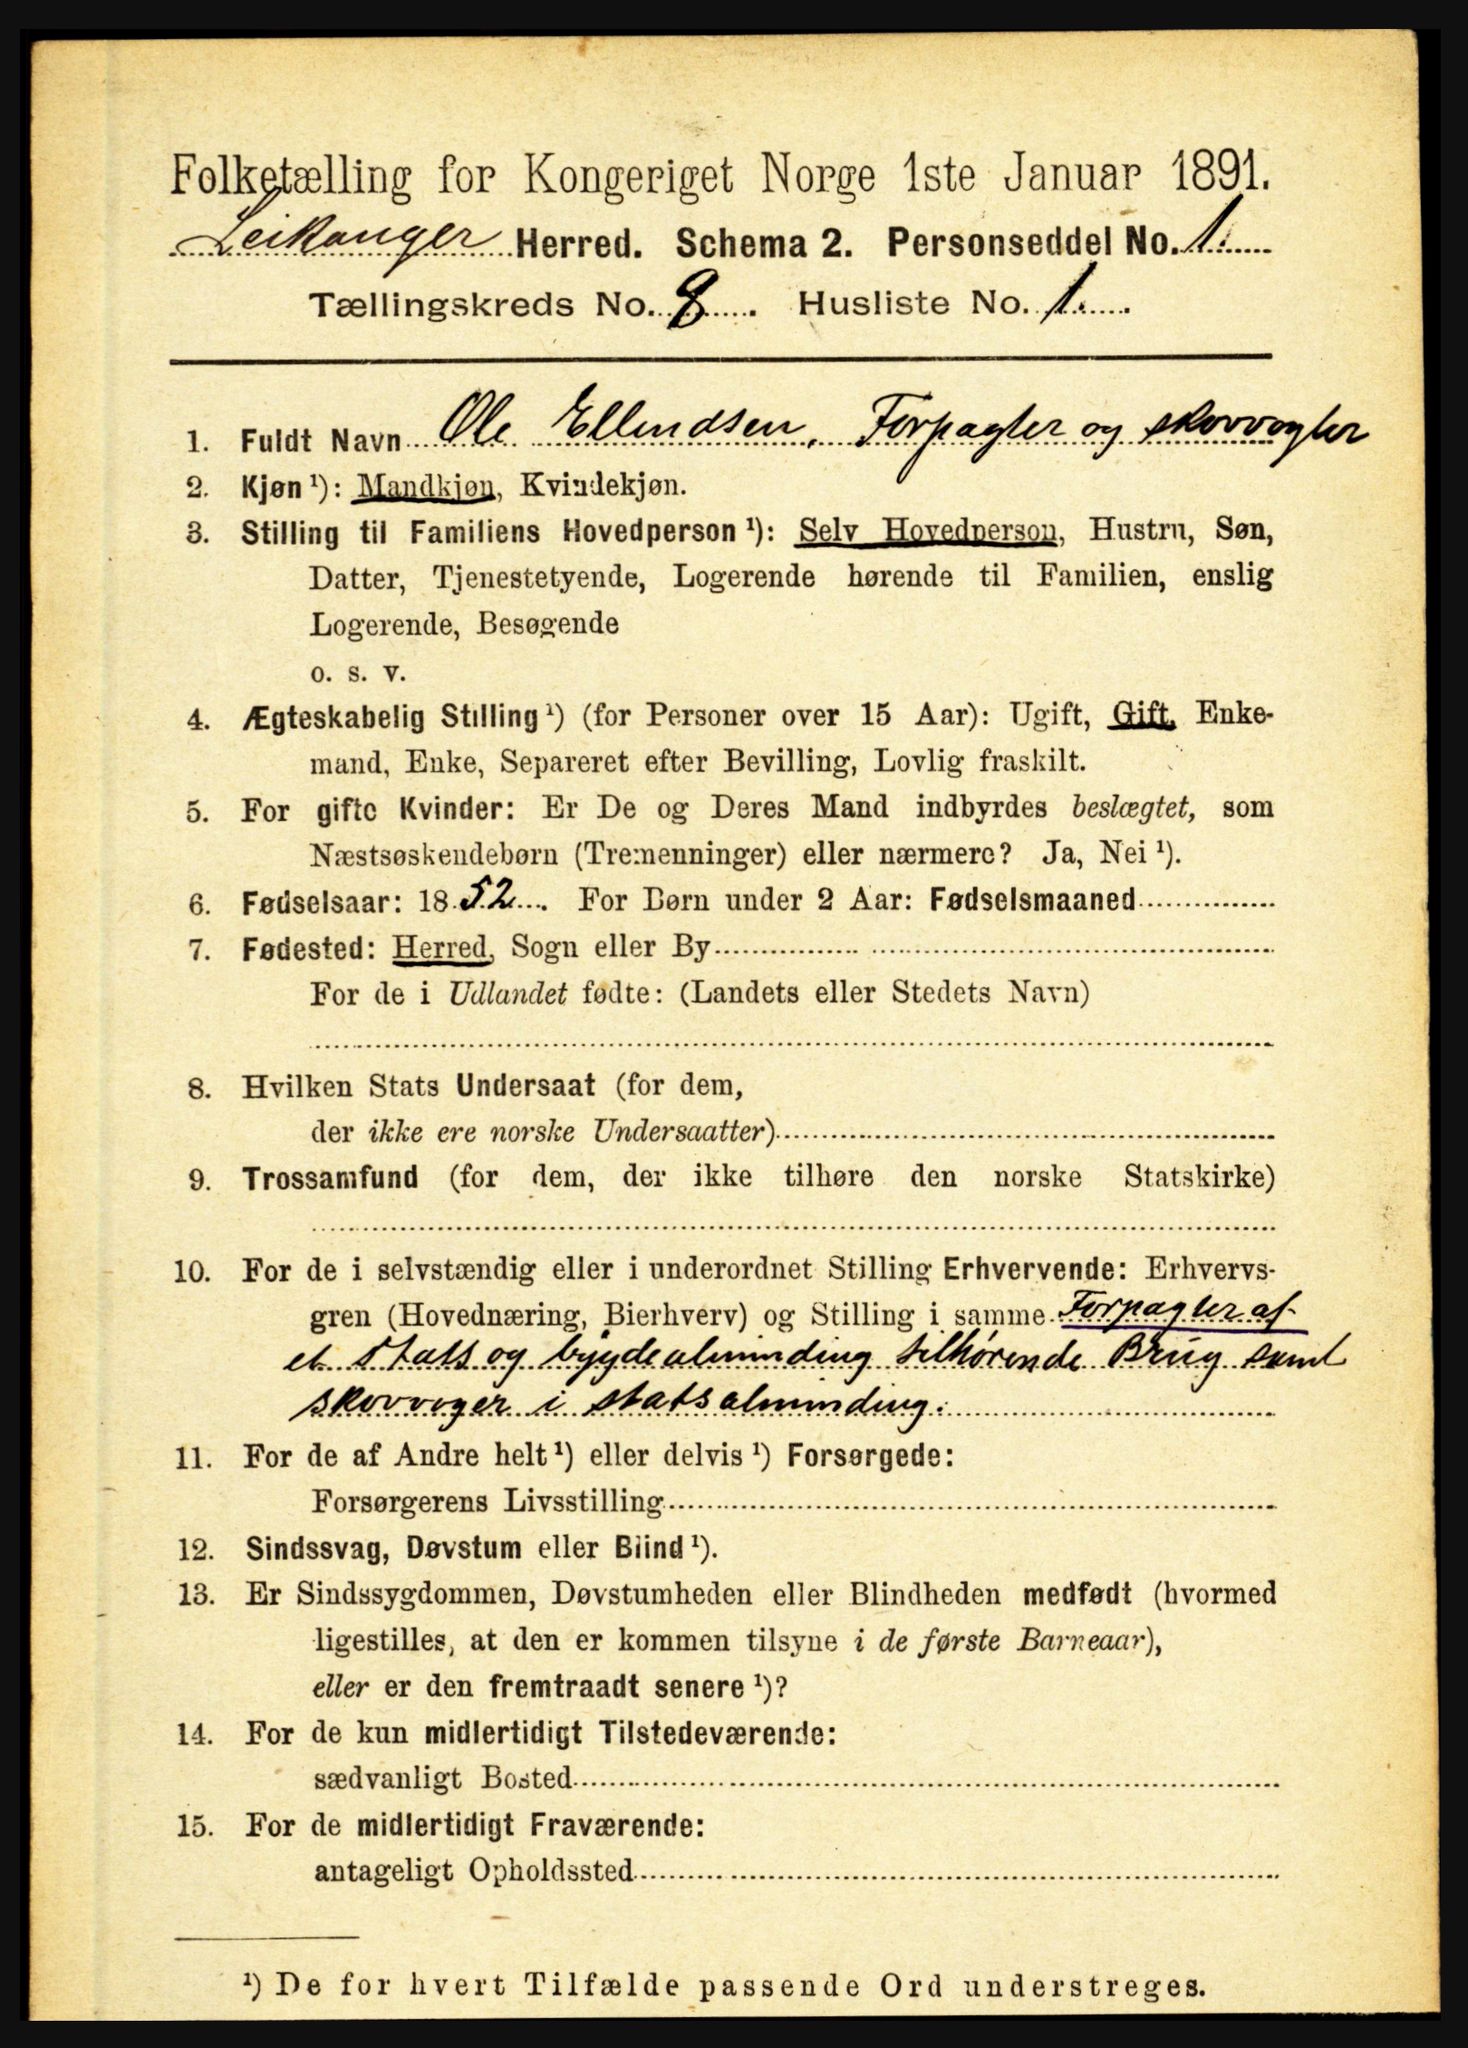 Folketælling for Kongeriget Norge 1ste Januar 1891.
Leikanger Herred. Schema 2. Personseddel No. 1.
Tællingskreds No. 8. Husliste No. 1.
1. Fuldt Navn Ole Ellendsen, Forpagter og skovvogter
2. Kjøn ¹): Mandkjøn, Kvindekjøn.
3. Stilling til Familiens Hovedperson ¹): Selv Hovedperson, Hustru, Søn,
Datter, Tjenestetyende, Logerende hørende til Familien, enslig
Logerende, Besøgende
o. s. v.
4. Ægteskabelig Stilling ¹) (for Personer over 15 Aar): Ugift, Gift, Enke-
mand, Enke, Separeret efter Bevilling, Lovlig fraskilt.
5. For gifte Kvinder: Er De og Deres Mand indbyrdes beslægtet, som
Næstsøskendebørn (Tremenninger) eller nærmere? Ja, Nei ¹).
6. Fødselsaar: 1852. For Børn under 2 Aar: Fødselsmaaned
7. Fødested: Herred, Sogn eller By
For de i Udlandet fødte: (Landets eller Stedets Navn)
8. Hvilken Stats Undersaat (for dem,
der ikke ere norske Undersaatter)
9. Trossamfund (for dem, der ikke tilhøre den norske Statskirke)
10. For de i selvstændig eller i underordnet Stilling Erhvervende: Erhvervs-
gren (Hovednæring, Bierhverv) og Stilling i samme Forpagter af
et Stats og bygdealminding tilhørende Brug samt
skovvoger i statsalminding.
11. For de af Andre helt ¹) eller delvis ¹) Forsørgede:
Forsørgerens Livsstilling
12. Sindssvag, Døvstum eller Blind ¹).
13. Er Sindssygdommen, Døvstumheden eller Blindheden medfødt (hvormed
ligestilles, at den er kommen tilsyne i de første Barneaar),
eller er den fremtraadt senere ¹)?
14. For de kun midlertidigt Tilstedeværende:
sædvanligt Bosted
15. For de midlertidigt Fraværende:
antageligt Opholdssted
¹) De for hvert Tilfælde passende Ord understreges.